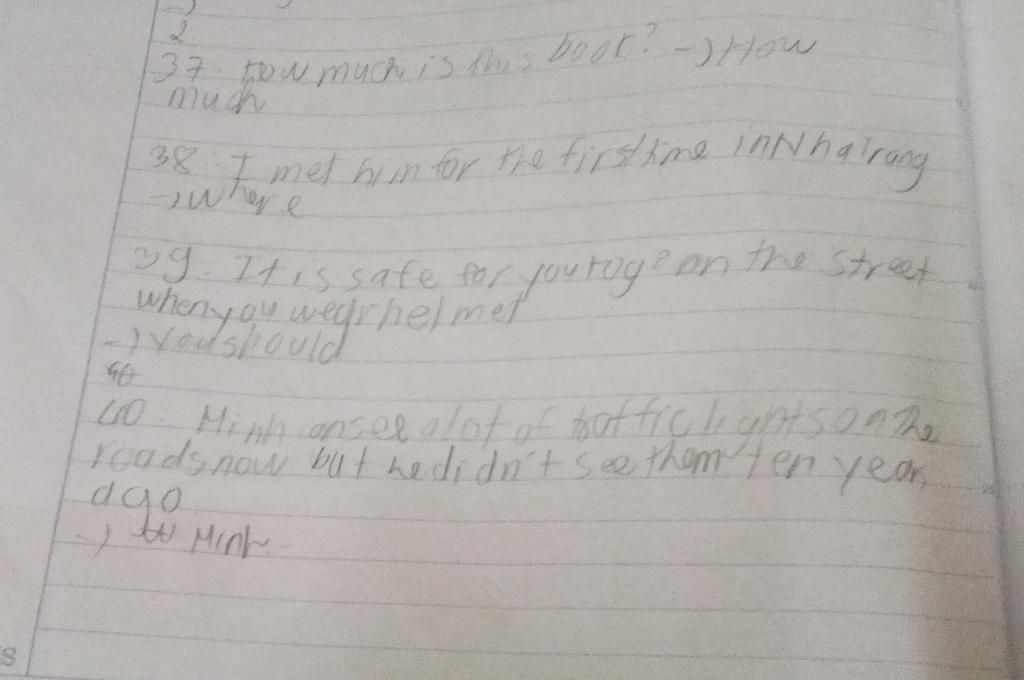 2
37. How much is this book? -> How
much
38. I met him for the first time in Nha Trang
-> Where
39. It is safe for you to go on the street
when you wear helmet
-> You should
40
40. Minh can see a lot of traffic lights on the
roads now but he didn't see them ten year
ago
-> Minh
s